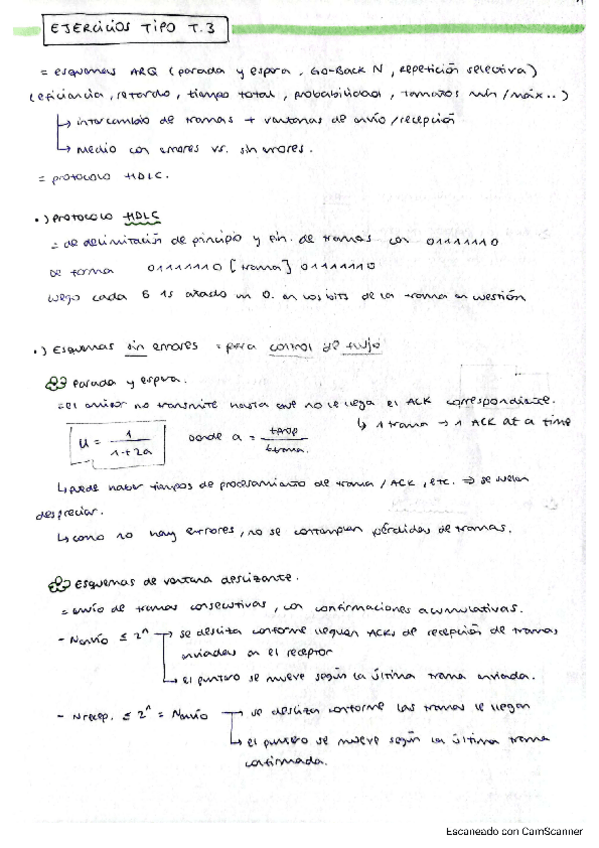 EJERCICIOS TIPO T.3
= esquemas ARQ (parada y espera, Go-Back N, repetición selectiva)
(eficiencia, retardo, tiempo total, probabilidad, tamaños mín/máx..)
↳ intercambio de tramas + ventanas de envío/recepción
↳ medio con errores vs. sin errores.
= protocolo HDLC.
•) Protocolo HDLC
= de delimitación de principio y fin. de tramas con 01111110
de forma 01111110 [trama] 01111110
luego cada 5 1s añado un 0. en los bits de la trama en cuestión
•) Esquemas sin errores = para control de flujo
Parada y espera.
= el emisor no transmite hasta que no le llega el ACK correspondiente.
↳ 1 trama → 1 ACK at a time
U = 1 / (1+2a) donde a = tprop / ttrama.
↳ puede haber tiempos de procesamiento de trama / ACK, etc. ⇒ se suelen
despreciar.
↳ como no hay errores, no se contemplan pérdidas de tramas.
Esquemas de ventana deslizante.
= envío de tramas consecutivas, con confirmaciones acumulativas.
- Nenvío ≤ 2^n → se desliza conforme lleguen ACKs de recepción de tramas
enviadas en el receptor
↳ el puntero se mueve según la última trama enviada.
- Nrecep. ≤ 2^n = Nenvío → se desliza conforme las tramas le llegan
↳ el puntero se mueve según la última trama
confirmada.
Escaneado con CamScanner